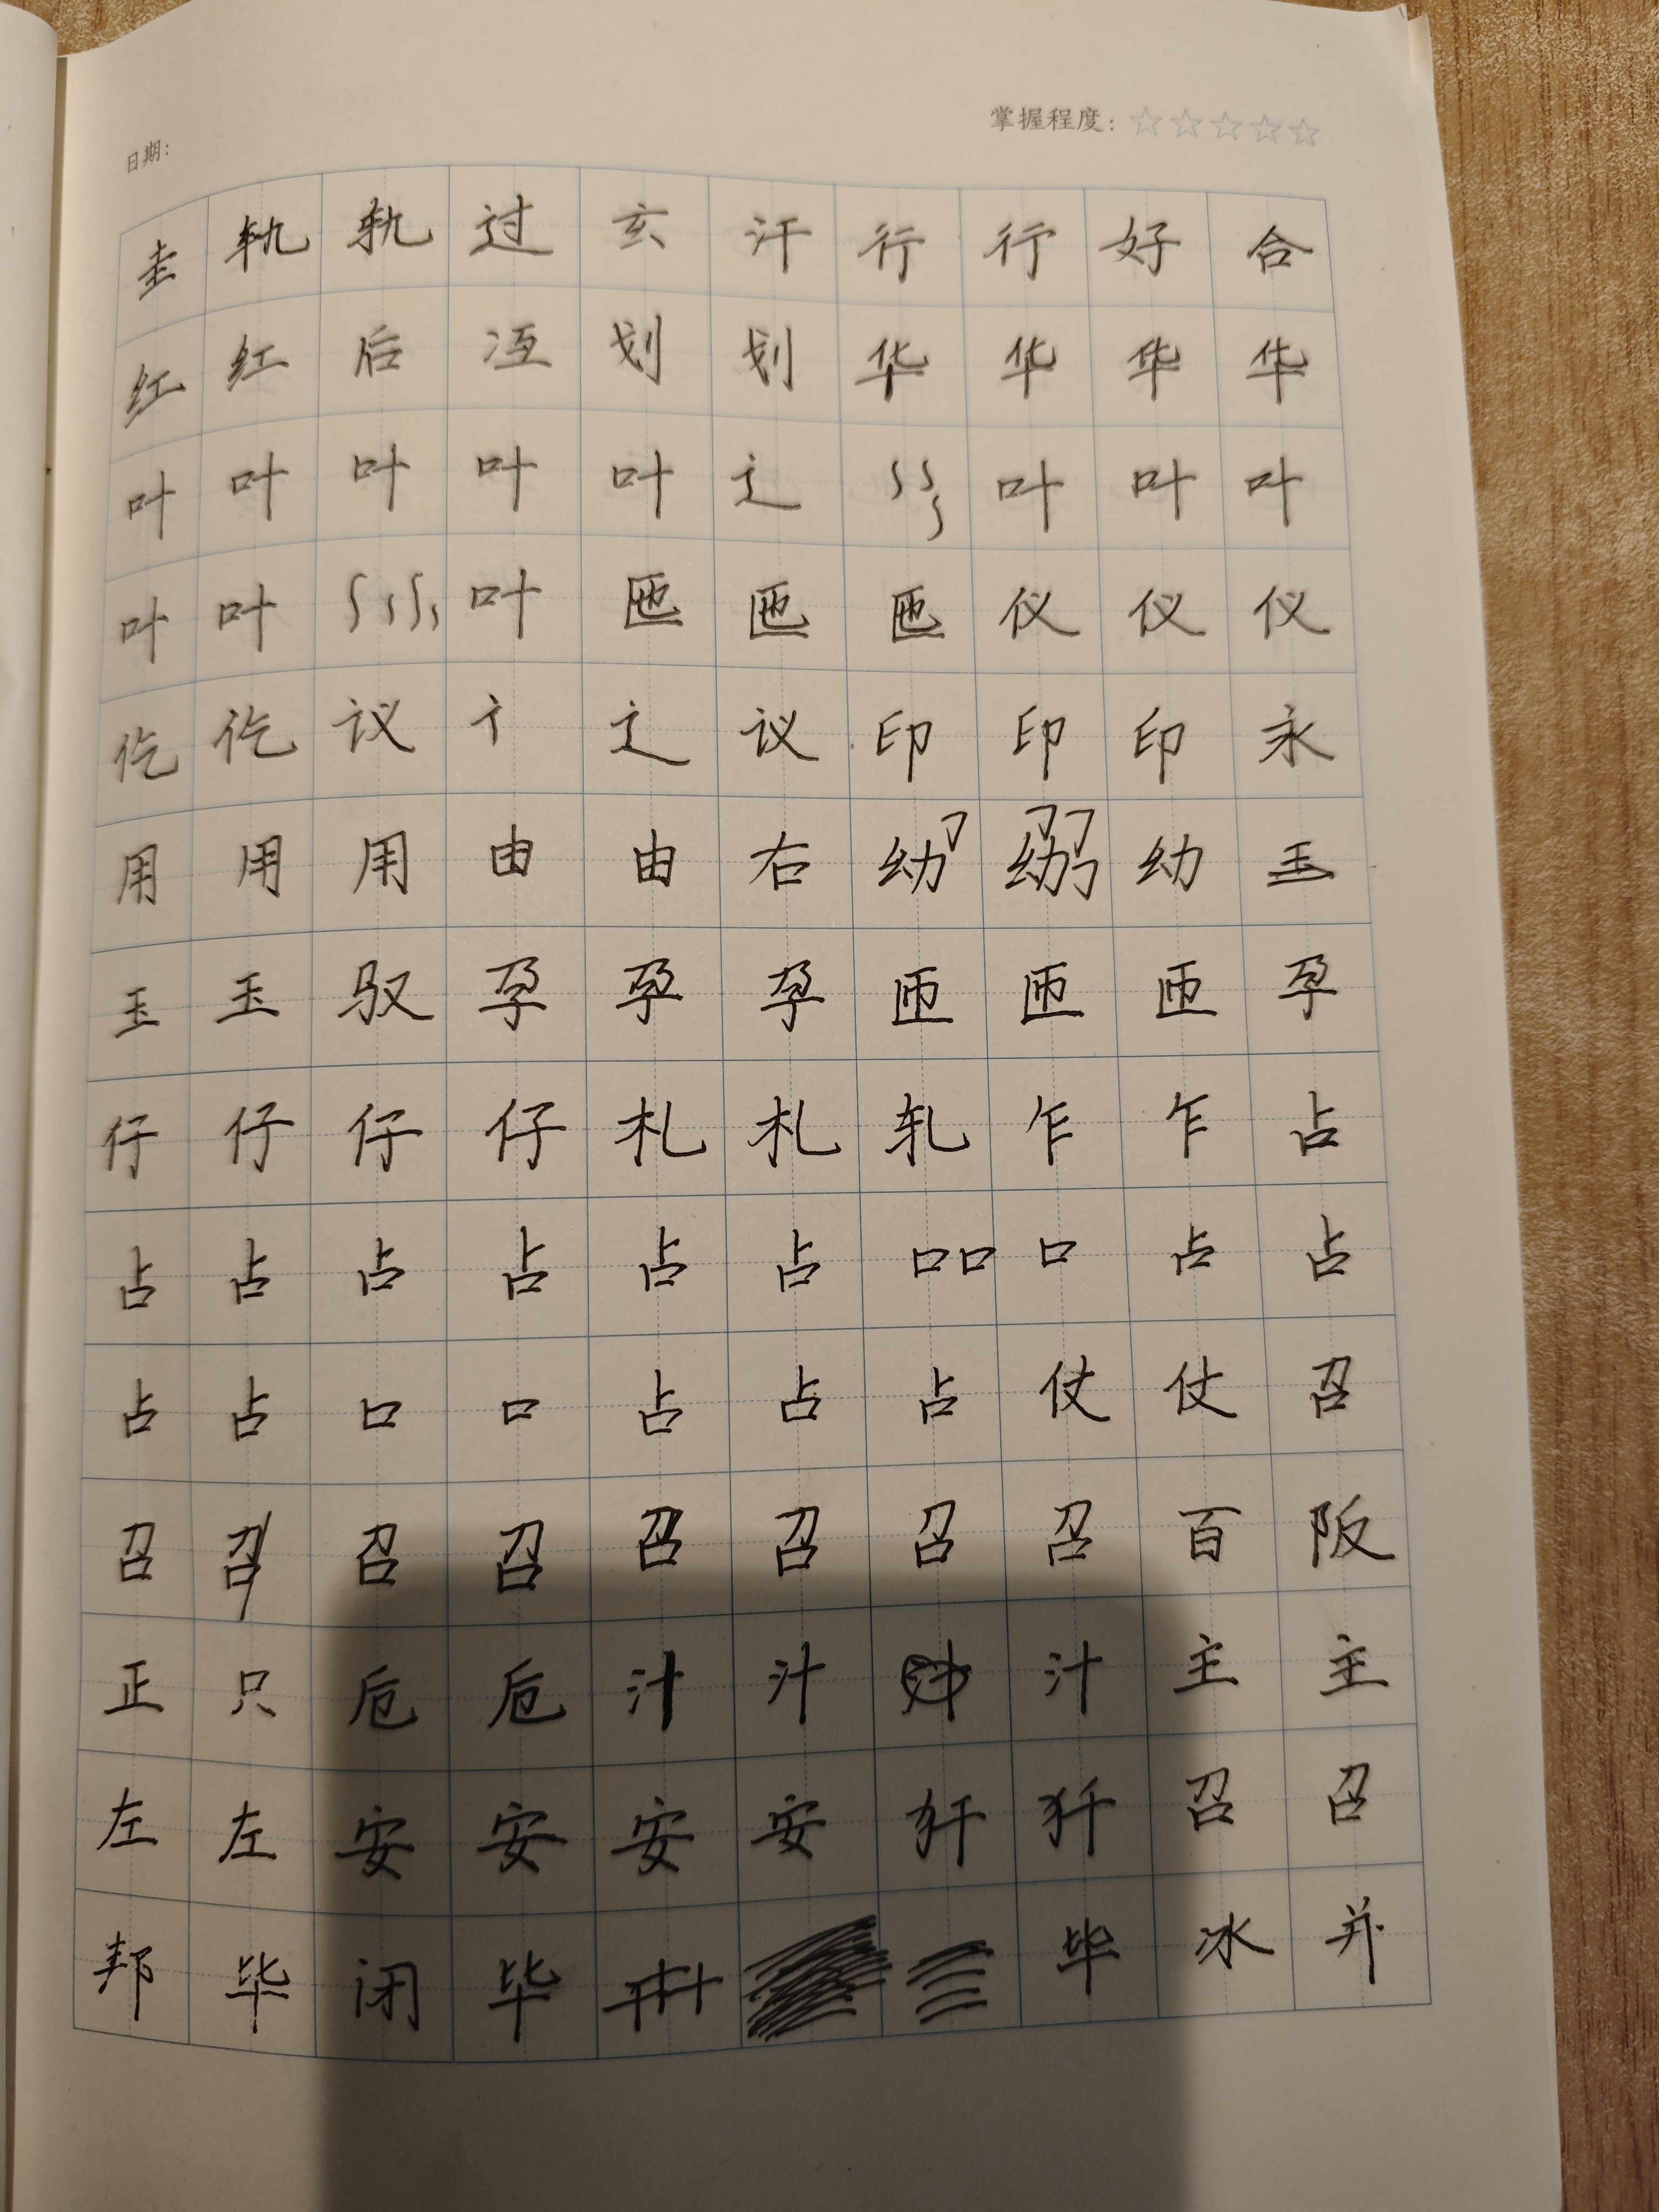 掌握程度：☆☆☆☆☆
日期：
圭 轨 轨 过 玄 汗 行 行 好 合
红 红 后 冱 划 划 华 华 华 华
叶 叶 叶 叶 叶 辶 叶 叶 叶
叶 叶 叶 匜 匜 匜 仪 仪 仪
仡 仡 议 辶 议 印 印 印 永
用 用 用 由 由 右 幼 幼 幼 玉
玉 玉 驭 孕 孕 孕 匝 匝 匝 孕
仔 仔 仔 仔 札 札 轧 乍 乍 占
占 占 占 占 占 占 口口 口 占 占
占 占 口 口 占 占 占 仗 仗 召
召 召 召 召 召 召 召 召 百 阪
正 只 卮 卮 汁 汁 汁 主 主
左 左 安 安 安 安 犴 犴 召 召
邦 毕 闭 毕 毕 冰 并